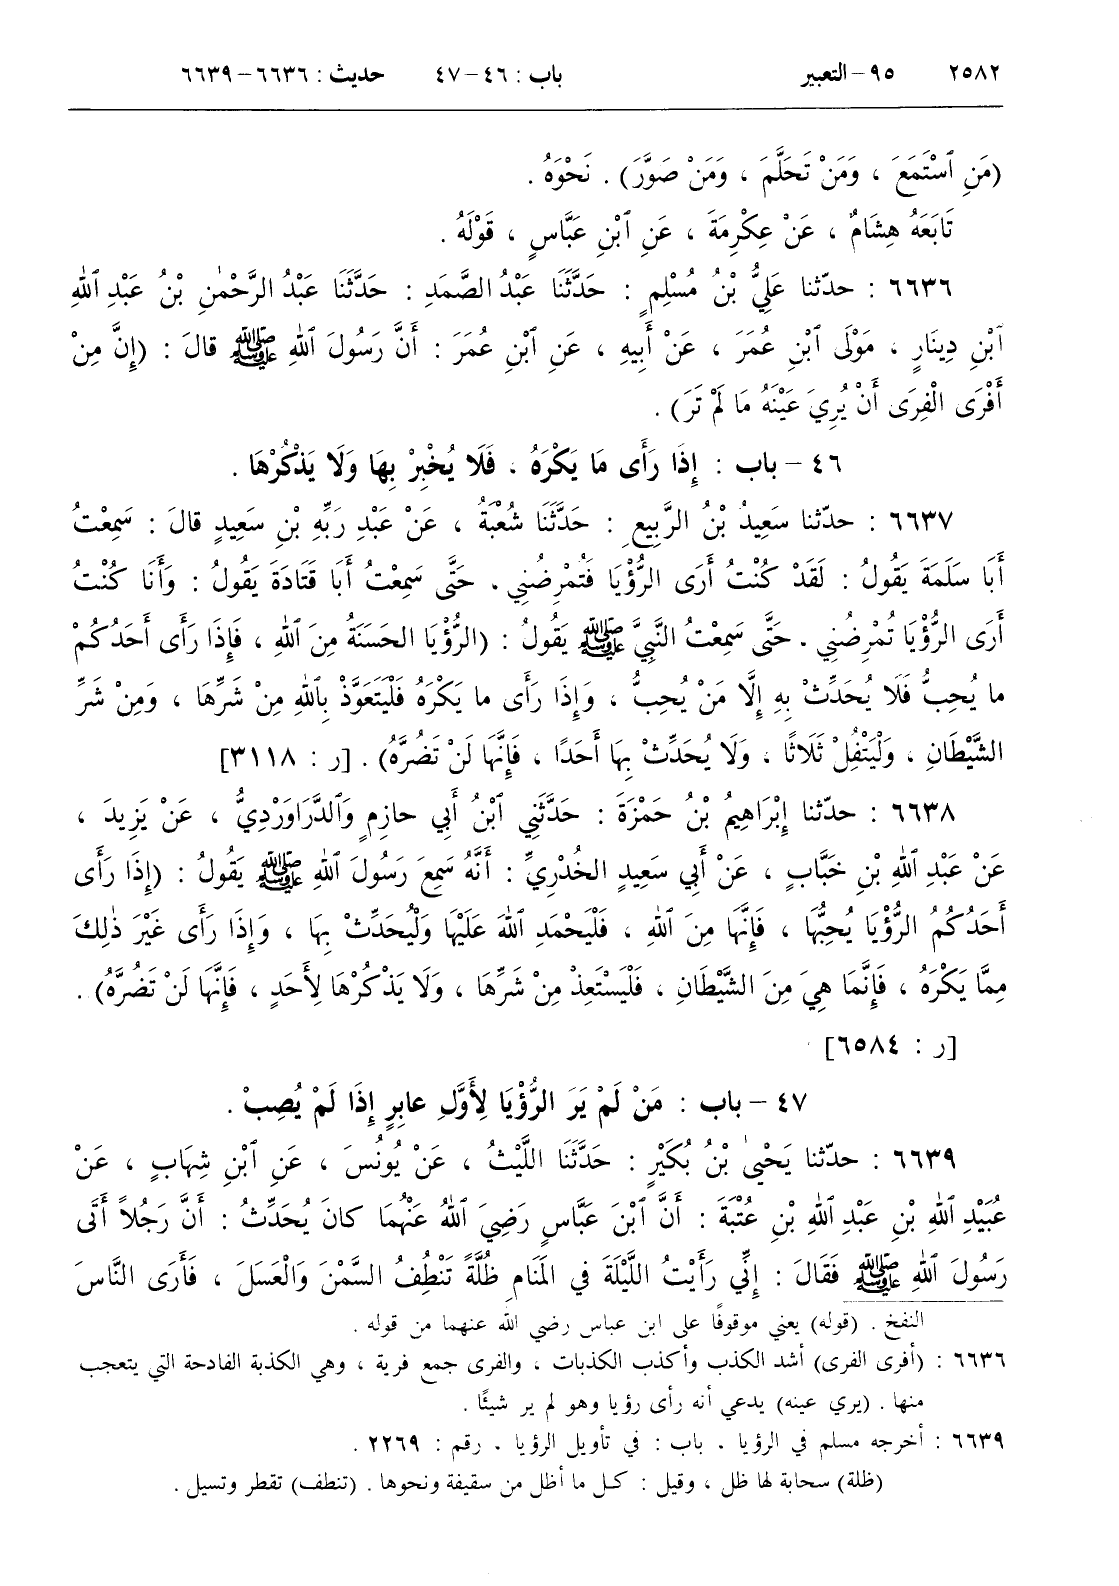 ٢٥٨٢ ٩٥ – التعبير باب : ٤٦ – ٤٧ حديث : ٦٦٣٦ – ٦٦٣٩
(مَنِ ٱسْتَمَعَ ، وَمَنْ تَحَلَّمَ ، وَمَنْ صَوَّرَ) . نَحْوَهُ .
تَابَعَهُ هِشَامٌ ، عَنْ عِكْرِمَةَ ، عَنِ ٱبْنِ عَبَّاسٍ ، قَوْلَهُ .
٦٦٣٦ : حدّثنا عَلِيُّ بْنُ مُسْلِمٍ : حَدَّثَنَا عَبْدُ الصَّمَدِ : حَدَّثَنَا عَبْدُ الرَّحْمٰنِ بْنُ عَبْدِ ٱللهِ
ٱبْنِ دِينَارٍ ، مَوْلَى ٱبْنِ عُمَرَ ، عَنْ أَبِيهِ ، عَنِ ٱبْنِ عُمَرَ : أَنَّ رَسُولَ ٱللهِ ﷺ قالَ : (إِنَّ مِنْ
أَفْرَى الْفِرَى أَنْ يُرِيَ عَيْنَهُ مَا لَمْ تَرَ) .
٤٦ – باب : إِذَا رَأَى مَا يَكْرَهُ ، فَلَا يُخْبِرْ بِهَا وَلَا يَذْكُرْهَا .
٦٦٣٧ : حدّثنا سَعِيدُ بْنُ الرَّبِيعِ : حَدَّثَنَا شُعْبَةُ ، عَنْ عَبْدِ رَبِّهِ بْنِ سَعِيدٍ قالَ : سَمِعْتُ
أَبَا سَلَمَةَ يَقُولُ : لَقَدْ كُنْتُ أَرَى الرُّؤْيَا فَتُمْرِضُنِي . حَتَّى سَمِعْتُ أَبَا قَتَادَةَ يَقُولُ : وَأَنَا كُنْتُ
أَرَى الرُّؤْيَا تُمْرِضُنِي . حَتَّى سَمِعْتُ النَّبِيَّ ﷺ يَقُولُ : (الرُّؤْيَا الحَسَنَةُ مِنَ ٱللهِ ، فَإِذَا رَأَى أَحَدُكُمْ
ما يُحِبُّ فَلَا يُحَدِّثْ بِهِ إِلَّا مَنْ يُحِبُّ ، وَإِذَا رَأَى ما يَكْرَهُ فَلْيَتَعَوَّذْ بِٱللهِ مِنْ شَرِّهَا ، وَمِنْ شَرِّ
الشَّيْطَانِ ، وَلْيَتْفِلْ ثَلَاثًا ، وَلَا يُحَدِّثْ بِهَا أَحَدًا ، فَإِنَّهَا لَنْ تَضُرَّهُ) . [ر : ٣١١٨]
٦٦٣٨ : حدّثنا إِبْرَاهِيمُ بْنُ حَمْزَةَ : حَدَّثَنِي ٱبْنُ أَبِي حازِمٍ وَٱلدَّرَاوَرْدِيُّ ، عَنْ يَزِيدَ ،
عَنْ عَبْدِ ٱللهِ بْنِ خَبَّابٍ ، عَنْ أَبِي سَعِيدٍ الخُدْرِيِّ : أَنَّهُ سَمِعَ رَسُولَ ٱللهِ ﷺ يَقُولُ : (إِذَا رَأَى
أَحَدُكُمُ الرُّؤْيَا يُحِبُّهَا ، فَإِنَّهَا مِنَ ٱللهِ ، فَلْيَحْمَدِ ٱللهَ عَلَيْهَا وَلْيُحَدِّثْ بِهَا ، وَإِذَا رَأَى غَيْرَ ذٰلِكَ
مِمَّا يَكْرَهُ ، فَإِنَّمَا هِيَ مِنَ الشَّيْطَانِ ، فَلْيَسْتَعِذْ مِنْ شَرِّهَا ، وَلَا يَذْكُرْهَا لِأَحَدٍ ، فَإِنَّهَا لَنْ تَضُرَّهُ) .
[ر : ٦٥٨٤]
٤٧ – باب : مَنْ لَمْ يَرَ الرُّؤْيَا لِأَوَّلِ عابِرٍ إِذَا لَمْ يُصِبْ .
٦٦٣٩ : حدّثنا يَحْيىٰ بْنُ بُكَيْرٍ : حَدَّثَنَا اللَّيْثُ ، عَنْ يُونُسَ ، عَنِ ٱبْنِ شِهَابٍ ، عَنْ
عُبَيْدِ ٱللهِ بْنِ عَبْدِ ٱللهِ بْنِ عُتْبَةَ : أَنَّ ٱبْنَ عَبَّاسٍ رَضِيَ ٱللهُ عَنْهُمَا كانَ يُحَدِّثُ : أَنَّ رَجُلاً أَتَى
رَسُولَ ٱللهِ ﷺ فَقَالَ : إِنِّي رَأَيْتُ اللَّيْلَةَ فِي المَنَامِ ظُلَّةً تَنْطِفُ السَّمْنَ وَالْعَسَلَ ، فَأَرَى النَّاسَ
النفخ . (قوله) يعني موقوفًا على ابن عباس رضي الله عنهما من قوله .
٦٦٣٦ : (أفرى الفرى) أشد الكذب وأكذب الكذبات ، والفرى جمع فرية ، وهي الكذبة الفادحة التي يتعجب
منها . (يري عينه) يدعي أنه رأى رؤيا وهو لم ير شيئًا .
٦٦٣٩ : أخرجه مسلم في الرؤيا . باب : في تأويل الرؤيا . رقم : ٢٢٦٩ .
(ظلة) سحابة لها ظل ، وقيل : كل ما أظل من سقيفة ونحوها . (تنطف) تقطر وتسيل .